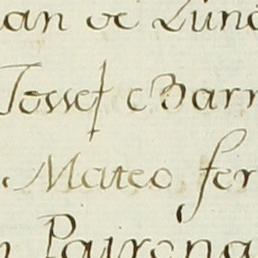 an de Luna
Jossef Barr
Mateo fer
Pairona